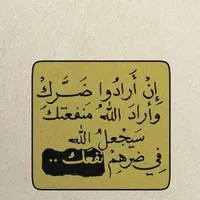 إِنْ أَرَادُوا ضَرَّكَ
وَأَرَادَ اللهُ مَنفَعَتكَ
سَيَجْعَلُ الله
فِي ضَرِهِمْ نَفْعَكَ ..